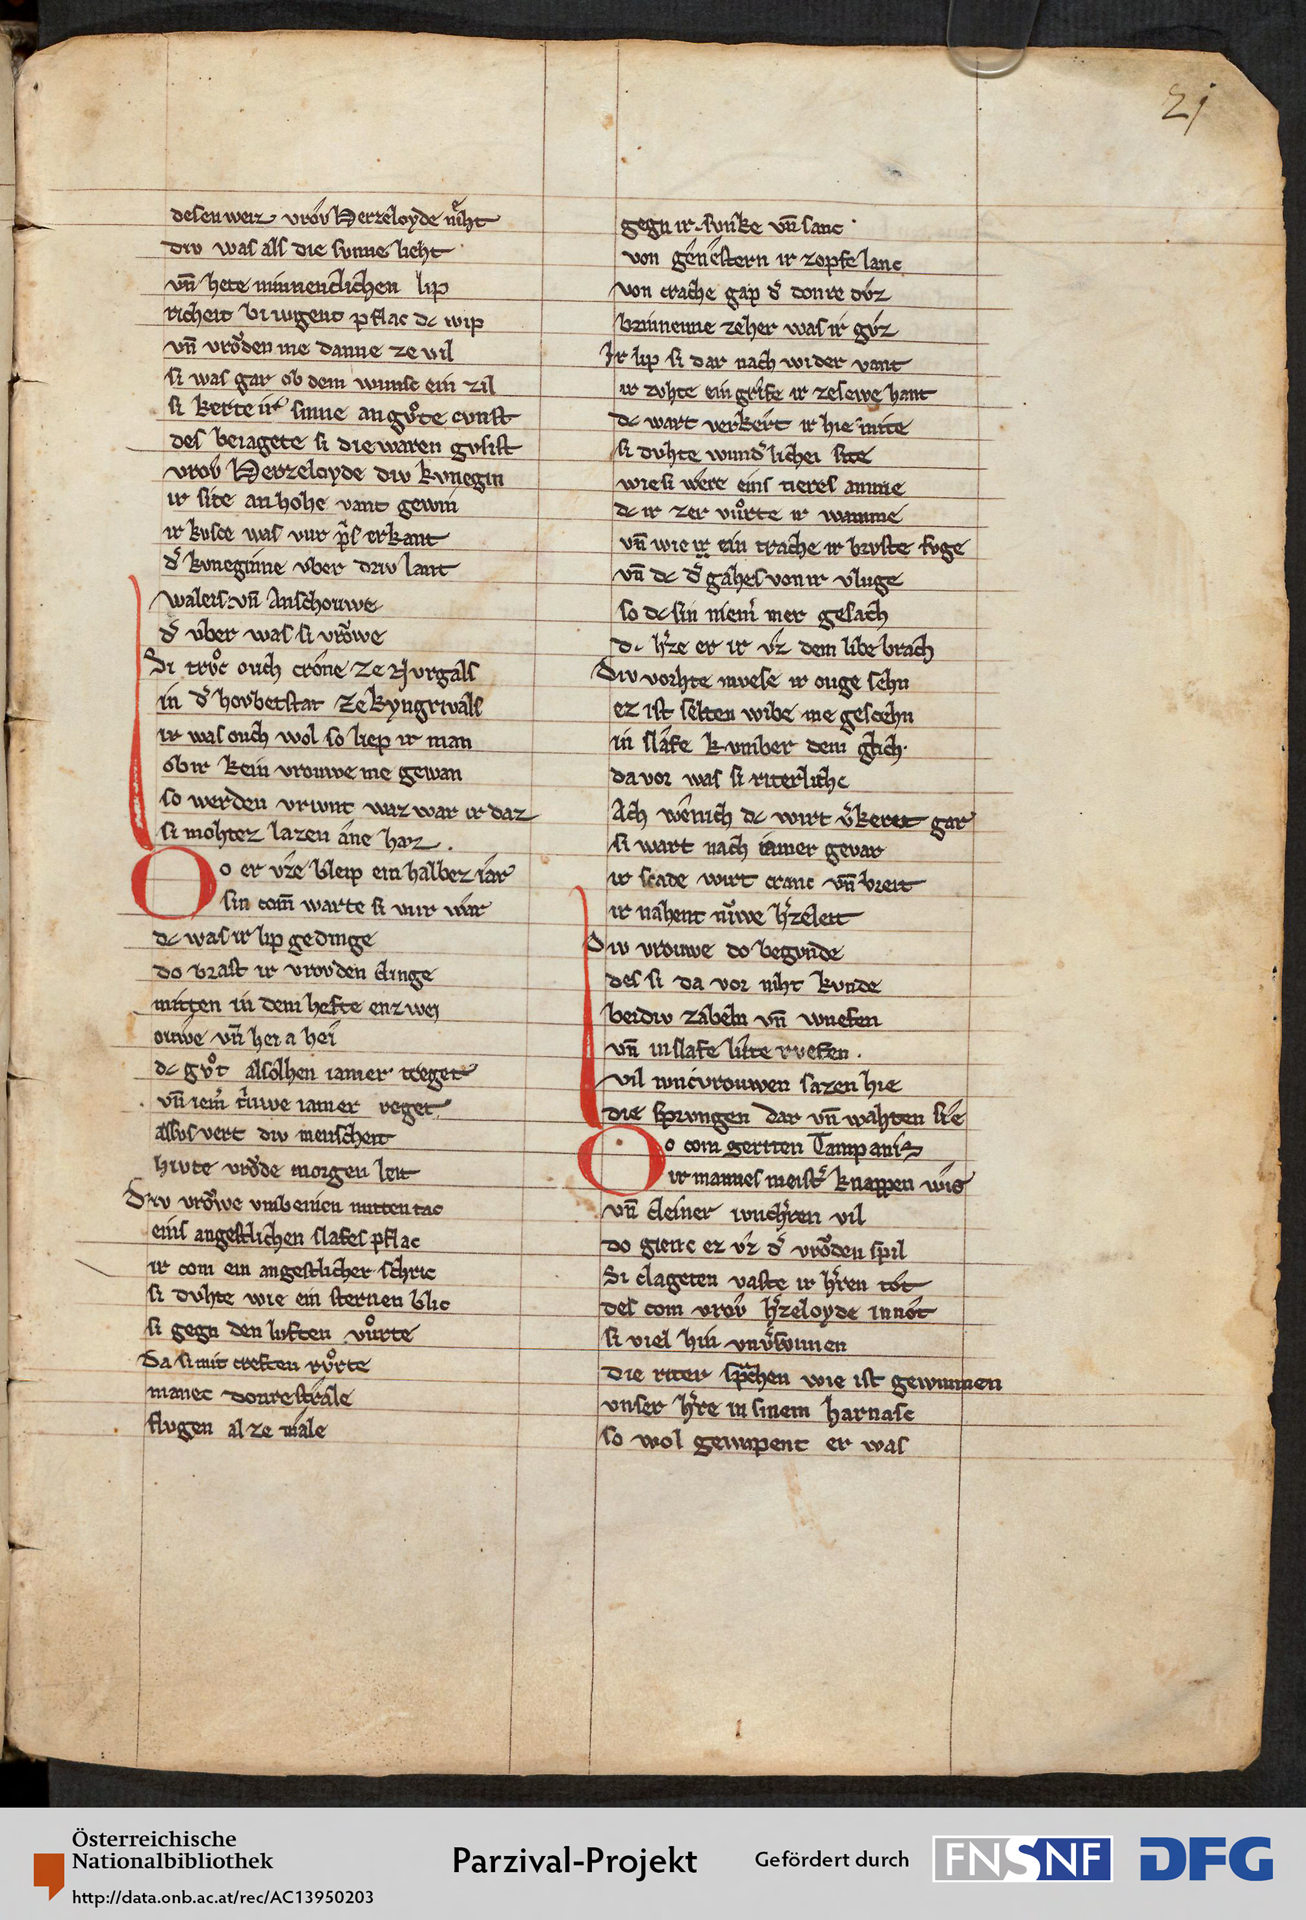 21
desen weiz vrov Herzeloyde niht
div was als die svnne lieht
vn̄ hete minnenclichen lip
richeit bi ivgent pflac dc wip
vn̄ vroͮden me danne ze vil
si was gar ob dem wunsc ein zil
si kerte ir sinne an gvͦte cvnst
des beiagete si die waren gvnst
vrov Herzeloyde div kvnegin
ir site an hohe vant gewin
ir kvsce was vur pͥs erkant
d͛ kvneginne vber driv lant
waleis vn̄ Anschouwe
d͛ vber was si vroͮwe
Si trvͦc ouch crone ze Nvrgals
in d͛ hovbetstat ze kyngrivals
ir was ouch wol so liep ir man
ob ir kein vrouwe me gewan
so werden vrivnt waz war ir daz
si mohtez lazen âne haz .
Do er vze bleip ein halbez iar
sin com̄ warte si vur war
dc was ir lip gedinge
do brast ir vrovden clinge
mitten in dem hefte enzwei
ouwe vn̄ hei a hei
dc gvͦt alsolhen iamer treget
vn̄ iem͛ triuwe iamer reget
alsvs vert div menscheit
hivte vroͮde morgen leit
Div vroͮwe vmb einen mitten tac
eins angestlichen slafes pflac
ir com ein angestlicher schric
si dvhte wie ein sternen blic
si gegn den lvften vuͦrte
Da si mit creften rvͦrte
manec donrestrâle
flvgen al ze mâle
gegn ir. svnke vn̄ sanc .
von généstern ir zopfe lanc
von crache gap d͛ donre dvz
brinnenne zeher was ir gvz
Ir lip si dar nach wider vant
ir zvhte ein grife ir zesewe hant
dc wart verkert ir hie mite
si dvhte wund͛lichei site
wie si were eins tieres amme
dc ir zer vuͦrte ir wamme
vn̄ wie ir ein trache ir brvste svge
vn̄ dc d͛ gâhes von ir vluge
so dc sin niem͛ mer gesach
dc h͛ze er ir vz dem libe brach
Div vorhte mvese ir ouge sehn
ez ist selten wibe me gescehn
in slâfe kvmber dem glich.
da vor was si riterlîche
Ach wênich dc wirt v͛keret gar
si wart nach iamer gevar
ir scade wirt cranc vn̄ breit
ir nahent nuͥwe h͛zeleit
Div vrouwe do begvnde
des si da vor niht kvnde
beidiv zabeln vn̄ wuefen
vn̄ in slafe lûte rvefen .
vil ivncvrouwen sazen hie
die sprvngen dar vn̄ wahten sie
Do com geriten Tampanis
ir mannes meist͛ knappen wis
vn̄ cleiner iuncħren vil
do gienc ez vz d͛ vroͮden spil
Si clageten vaste ir h͛ren tôt
des com vrov h͛zeloyde in nôt
si viel hin vnv͛svnnen
die riter sprachen wie ist gewunnen
vnser h͛re in sinem harnasc
so wol gewapent er was
Österreichische
Nationalbibliothek
http://data.onb.ac.at/rec/AC13950203
Parzival-Projekt
Gefördert durch
FNSNF
DFG